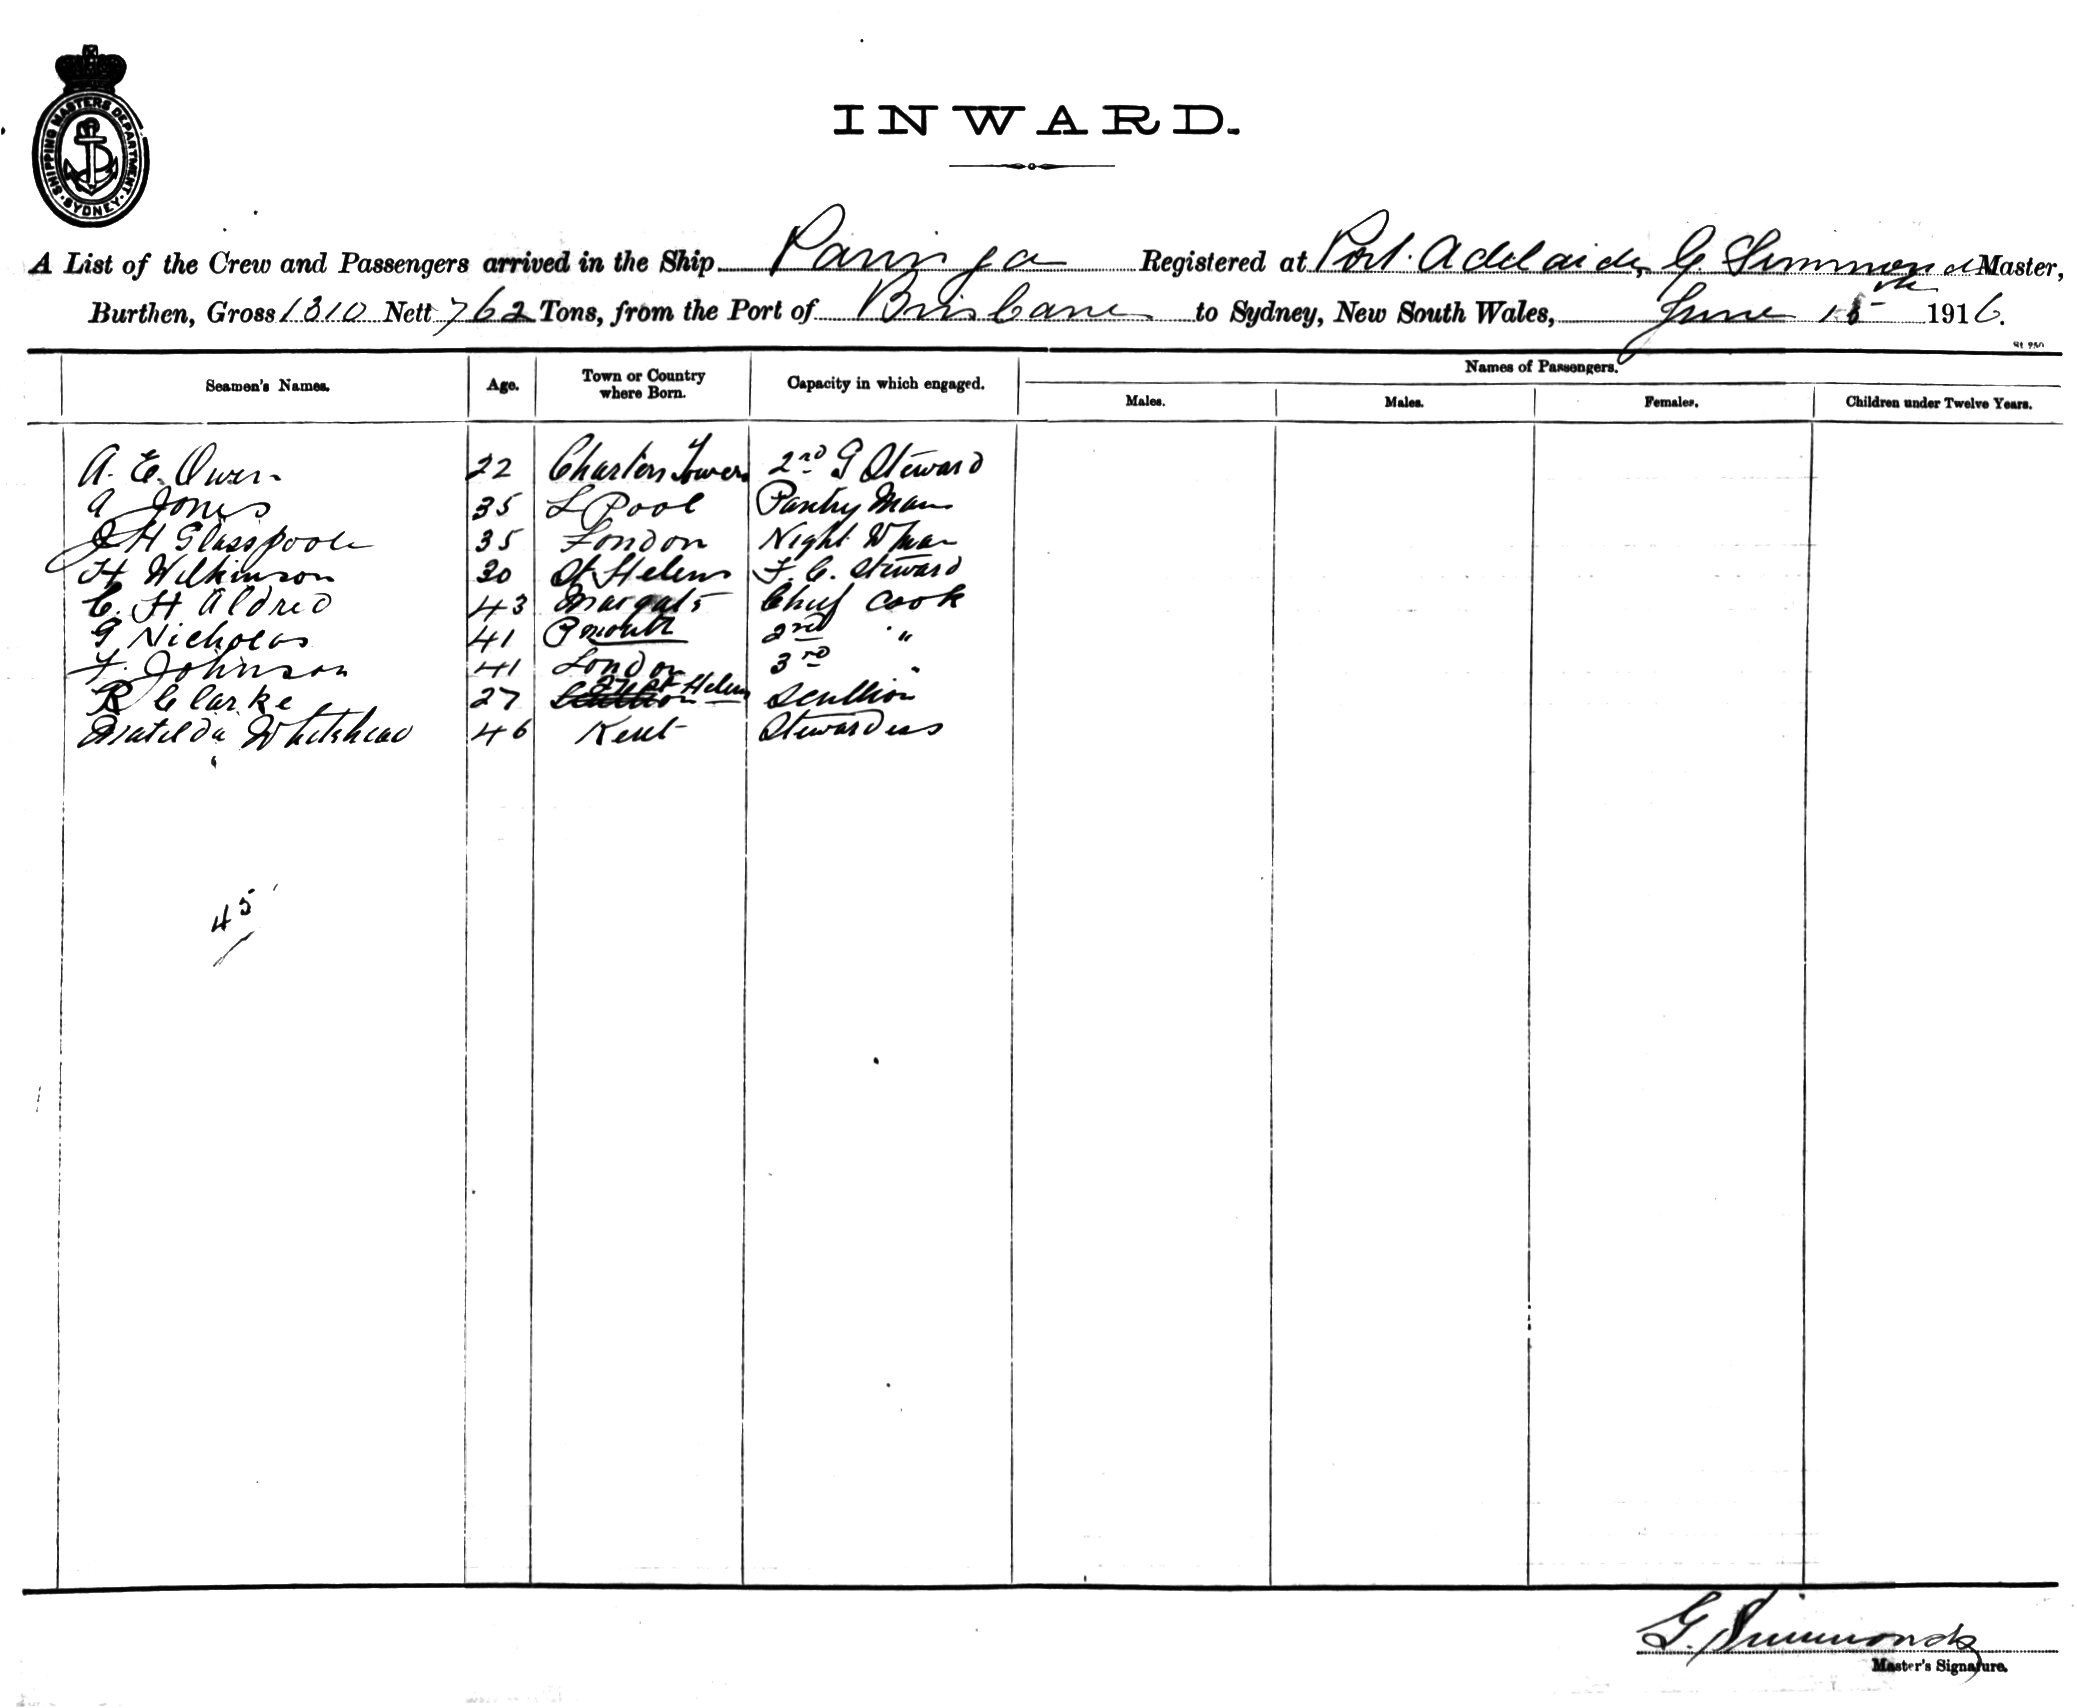 SHIPPING MASTERS DEPARTMENT
SYDNEY
INWARD.
A List of the Crew and Passengers arrived in the Ship Paringa Registered at Port. Adelaide, G. Simmonds Master,
Burthen, Gross 1310 Nett 762 Tons, from the Port of Brisbane to Sydney, New South Wales, June 15th 1916.
Seamen's Names. Age. Town or Country where Born. Capacity in which engaged. Names of Passengers.
Males. Males. Females. Children under Twelve Years.
A. E. Owen 22 Charters Towers 2nd G Steward
A Jones 35 L Pool Pantry Man
J H Glasspoole 35 London Night Wman
H Wilkinson 30 St Helens F. C. Steward
C. H Aldred 43 Margate Chief Cook
G Nicholas 41 Pmouth 2nd "
F. Johnson 41 London 3rd "
R Clarke 27 St Helens Scullion
Matilda Whitehead 46 Kent Stewardess
45
G. Simmonds
Master's Signature.